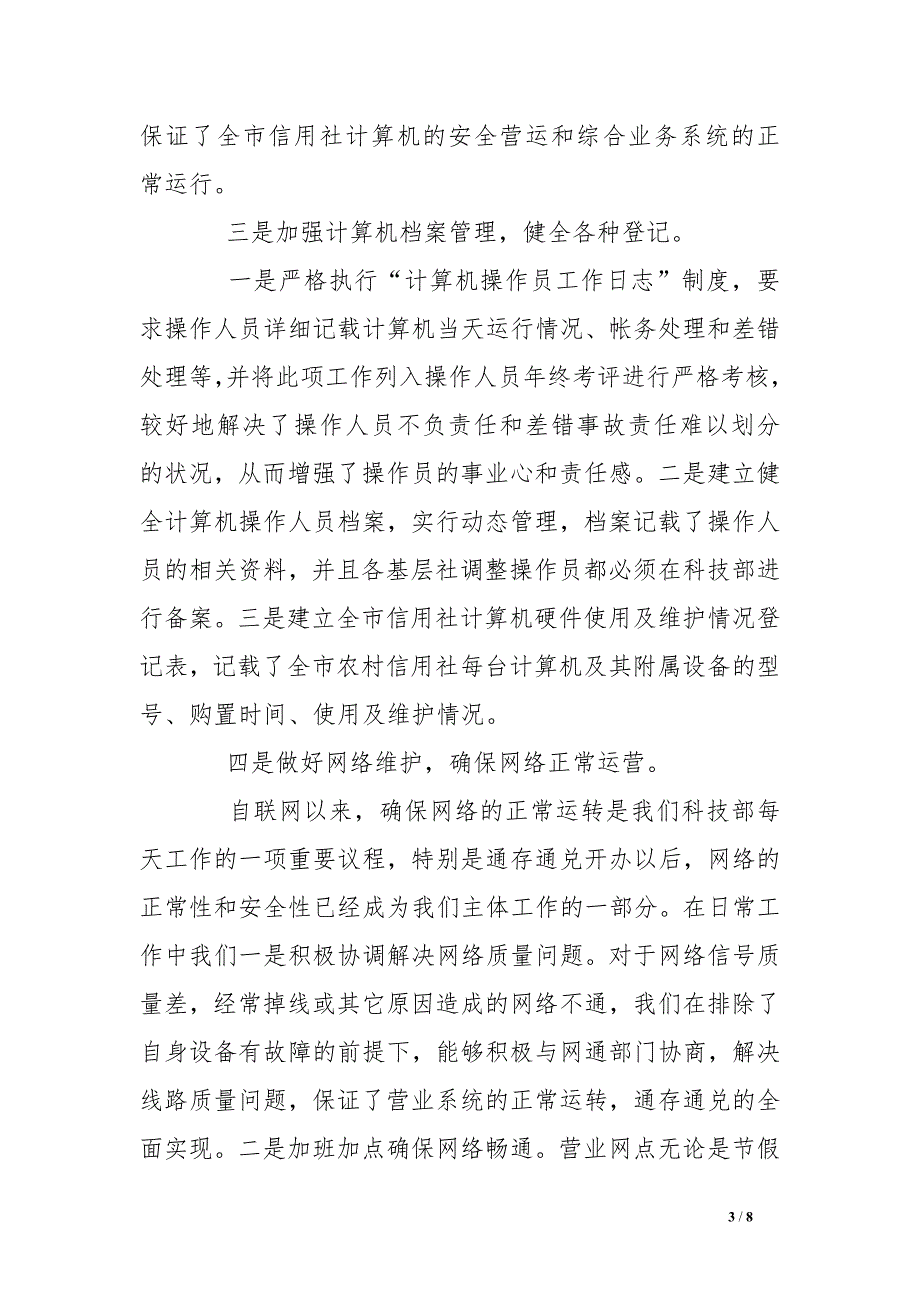 保证了全市信用社计算机的安全营运和综合业务系统的正
常运行。
三是加强计算机档案管理，健全各种登记。
一是严格执行“计算机操作员工作日志”制度，要
求操作人员详细记载计算机当天运行情况、帐务处理和差错
处理等，并将此项工作列入操作人员年终考评进行严格考核，
较好地解决了操作人员不负责任和差错事故责任难以划分
的状况，从而增强了操作员的事业心和责任感。二是建立健
全计算机操作人员档案，实行动态管理，档案记载了操作人
员的相关资料，并且各基层社调整操作员都必须在科技部进
行备案。三是建立全市信用社计算机硬件使用及维护情况登
记表，记载了全市农村信用社每台计算机及其附属设备的型
号、购置时间、使用及维护情况。
四是做好网络维护，确保网络正常运营。
自联网以来，确保网络的正常运转是我们科技部每
天工作的一项重要议程，特别是通存通兑开办以后，网络的
正常性和安全性已经成为我们主体工作的一部分。在日常工
作中我们一是积极协调解决网络质量问题。对于网络信号质
量差，经常掉线或其它原因造成的网络不通，我们在排除了
自身设备有故障的前提下，能够积极与网通部门协商，解决
线路质量问题，保证了营业系统的正常运转，通存通兑的全
面实现。二是加班加点确保网络畅通。营业网点无论是节假
3 / 8